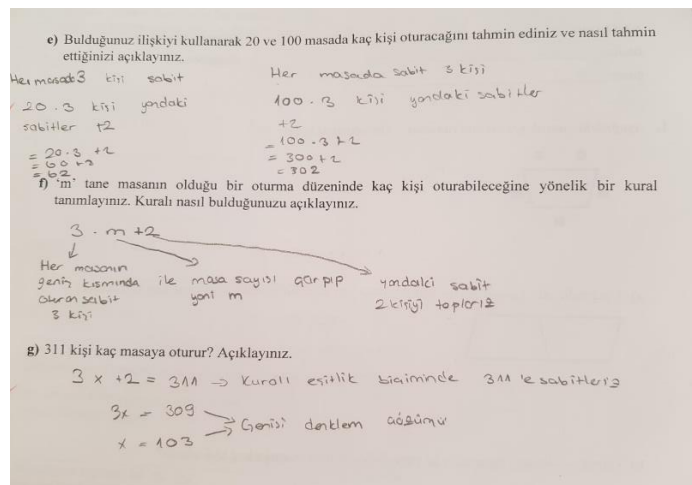 e) Bulduğunuz ilişkiyi kullanarak 20 ve 100 masada kaç kişi oturacağını tahmin ediniz ve nasıl tahmin
ettiğinizi açıklayınız.
Her masada 3 kişi sabit
20 · 3 kişi yandaki
sabitler +2
= 20·3 +2
= 60 +2
= 62
Her masada sabit 3 kişi
100 · 3 kişi yandaki sabitler
+2
= 100 · 3 +2
= 300 +2
= 302
f) 'm' tane masanın olduğu bir oturma düzeninde kaç kişi oturabileceğine yönelik bir kural
tanımlayınız. Kuralı nasıl bulduğunuzu açıklayınız.
3 · m +2
Her masanın
geniş kısmında
oturan sabit
3 kişi
ile masa sayısı çarpıp
yani m
yandaki sabit
2 kişiyi toplarız
g) 311 kişi kaç masaya oturur? Açıklayınız.
3x +2 = 311 → Kuralı eşitlik biçiminde 311'e sabitleriz
3x = 309
x = 103
Gerisi denklem çözümü